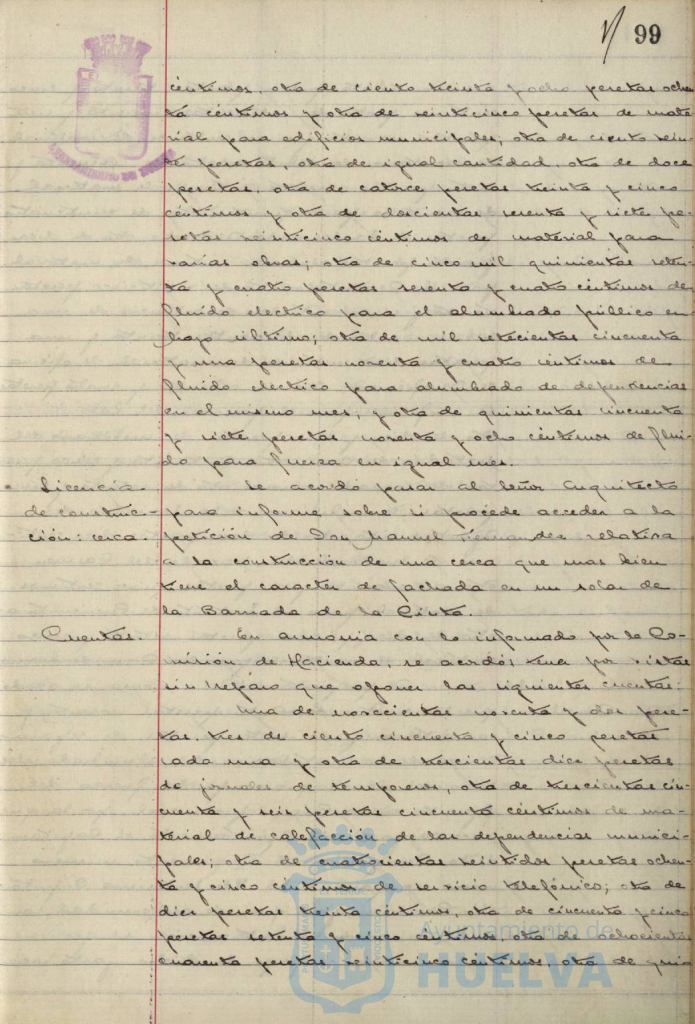 99
céntimos, otra de ciento treinta y ocho pesetas ochen-
ta céntimos y otra de veinticinco pesetas de mate-
rial para edificios municipales; otra de ciento vein-
te pesetas, otra de igual cantidad, otra de doce
pesetas, otra de catorce pesetas treinta y cinco
céntimos y otra de doscientas sesenta y siete pe-
setas veinticinco céntimos de material para
varias obras; otra de cinco mil quinientas seten-
ta y cuatro pesetas sesenta y cuatro céntimos de
fluido electrico para el alumbrado público en
Mayo último; otra de mil setecientas cincuenta
y una pesetas noventa y cuatro céntimos de
fluido electrico para alumbrado de dependencias
en el mismo mes, y otra de quinientas cincuenta
y siete pesetas noventa y ocho céntimos de flui-
do para fuerza en igual mes.
Licencia Se acordó pasar al Señor Arquitecto
de construc- para informe sobre si procede acceder a la
ción: cerca. petición de Don Manuel Fernandez relativa
a la construcción de una cerca que mas bien
tiene el caracter de fachada en un solar de
la Barriada de la Cinta.
Cuentas. En armonia con lo informado por la Co-
misión de Hacienda, se acordó tener por vistas
sin reparo que oponer las siguientes cuentas:
Una de novecientas noventa y dos pese-
tas, tres de ciento cincuenta y cinco pesetas
cada una y otra de trescientas diez pesetas
de jornales de temporeros, otra de trescientas cin-
cuenta y seis pesetas cincuenta céntimos de ma-
terial de calefacción de las dependencias munici-
pales; otra de cuatrocientas veintidos pesetas ochen-
ta y cinco céntimos de servicio telefónico; otra de
diez pesetas treinta céntimos, otra de cincuenta y cinco
pesetas setenta y cinco céntimos, otra de ochocientas
cuarenta pesetas veinticinco céntimos, otra de quin
Ayuntamiento de
HUELVA